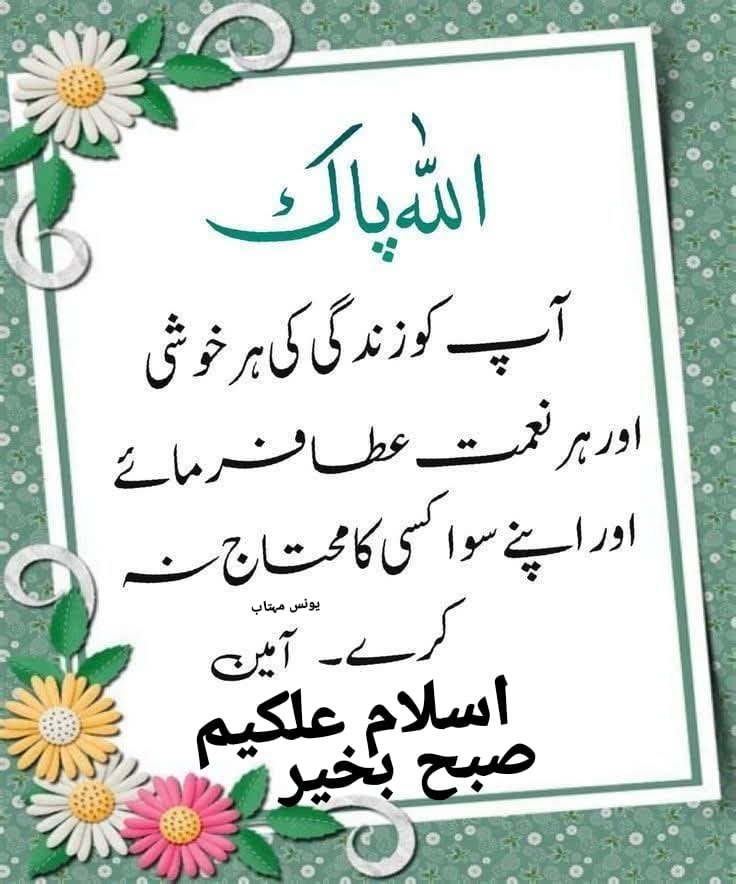 اللہ پاک
آپ کو زندگی کی ہر خوشی
اور ہر نعمت عطا فرمائے
اور اپنے سوا کسی کا محتاج نہ
یونس مہتاب
کرے۔ آمین
اسلام علکیم
صبح بخیر